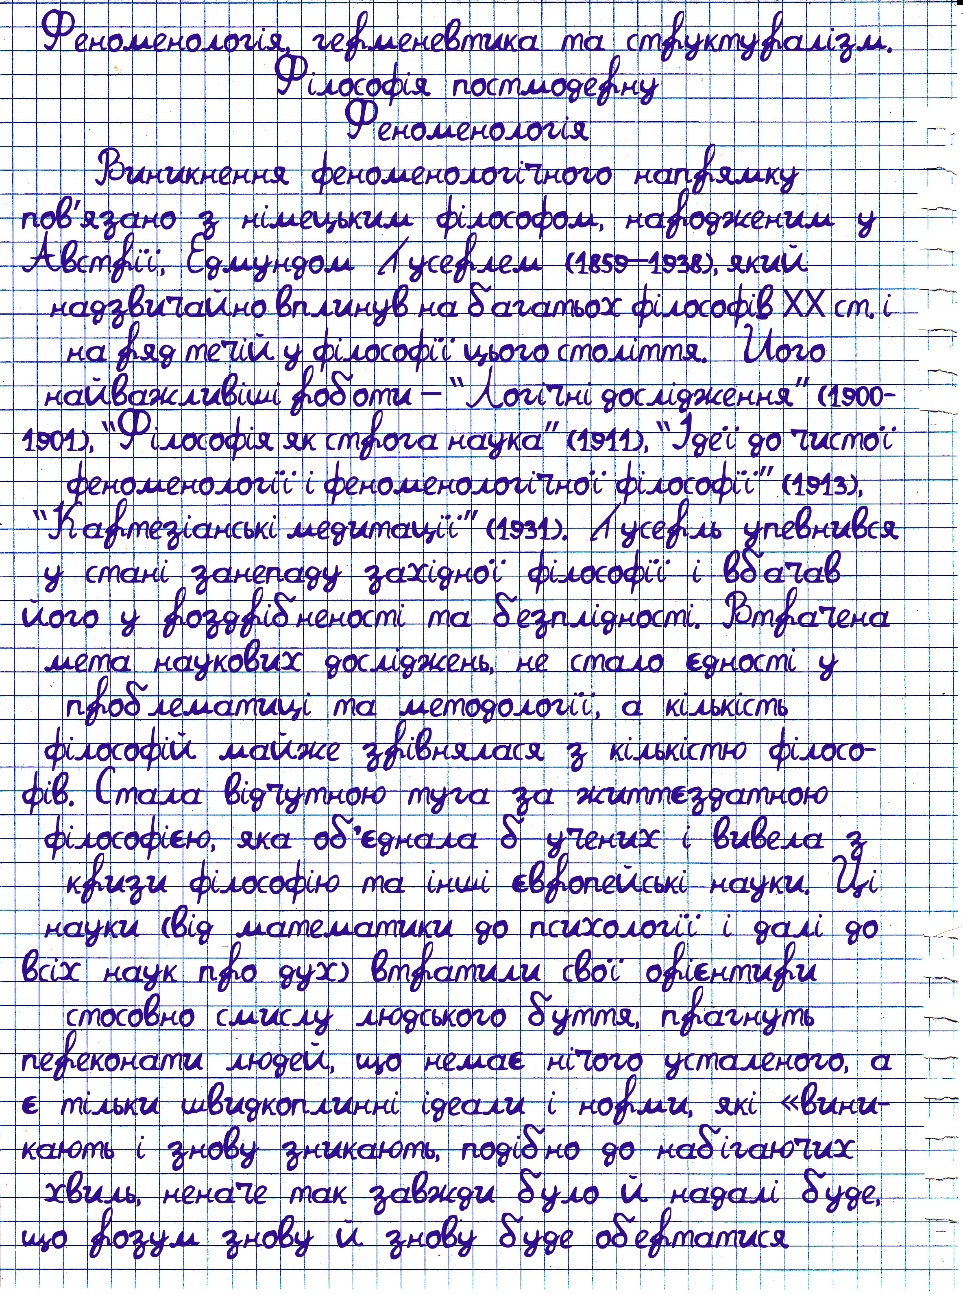 Феноменологія, герменевтика та структуралізм.
Філософія постмодерну
Феноменологія
Виникнення феноменологічного напрямку
пов'язано з німецьким філософом, народженим у
Австрії, Едмундом Гусерлем (1859–1938), який
надзвичайно вплинув на багатьох філософів XX ст. і
на ряд течій у філософії цього століття. Його
найважливіші роботи – "Логічні дослідження" (1900-
1901), "Філософія як строга наука" (1911), "Ідеї до чистої
феноменології і феноменологічної філософії" (1913),
"Картезіанські медитації" (1931). Гусерль упевнився
у стані занепаду західної філософії і вбачав
його у роздрібненості та безплідності. Втрачена
мета наукових досліджень, не стало єдності у
проблематиці та методології, а кількість
філософій майже зрівнялася з кількістю філосо-
фів. Стала відчутною туга за життєздатною
філософією, яка об'єднала б учених і вивела з
кризи філософію та інші європейські науки. Ці
науки (від математики до психології і далі до
всіх наук про дух) втратили свої орієнтири
стосовно смислу людського буття, прагнуть
переконати людей, що немає нічого усталеного, а
є тільки швидкоплинні ідеали і норми, які «вини-
кають і знову зникають, подібно до набігаючих
хвиль, неначе так завжди було й надалі буде,
що розум знову й знову буде обертатися